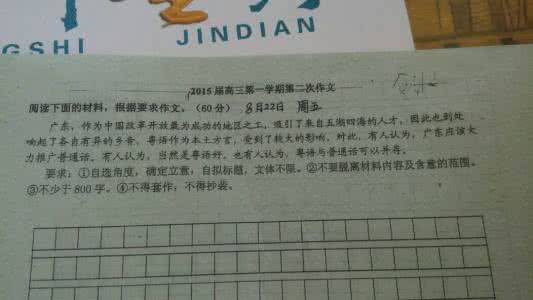 NGSHI JINDIAN
2015届高三第一学期第二次作文
阅读下面的材料，根据要求作文。（60分） 8月22日 周五
广东，作为中国改革开放最为成功的地区之一，吸引了来自五湖四海的人才，因此也到处
响起了各自有异的乡音，粤语作为本土方言，受到了较大的影响。对此，有人认为，广东应该大
力推广普通话。有人认为，当然是粤语好。也有人认为，粤语与普通话可以并存。
要求：①自选角度，确定立意，自拟标题，文体不限。②不要脱离材料内容及含意的范围。
③不少于800字。④不得套作，不得抄袭。